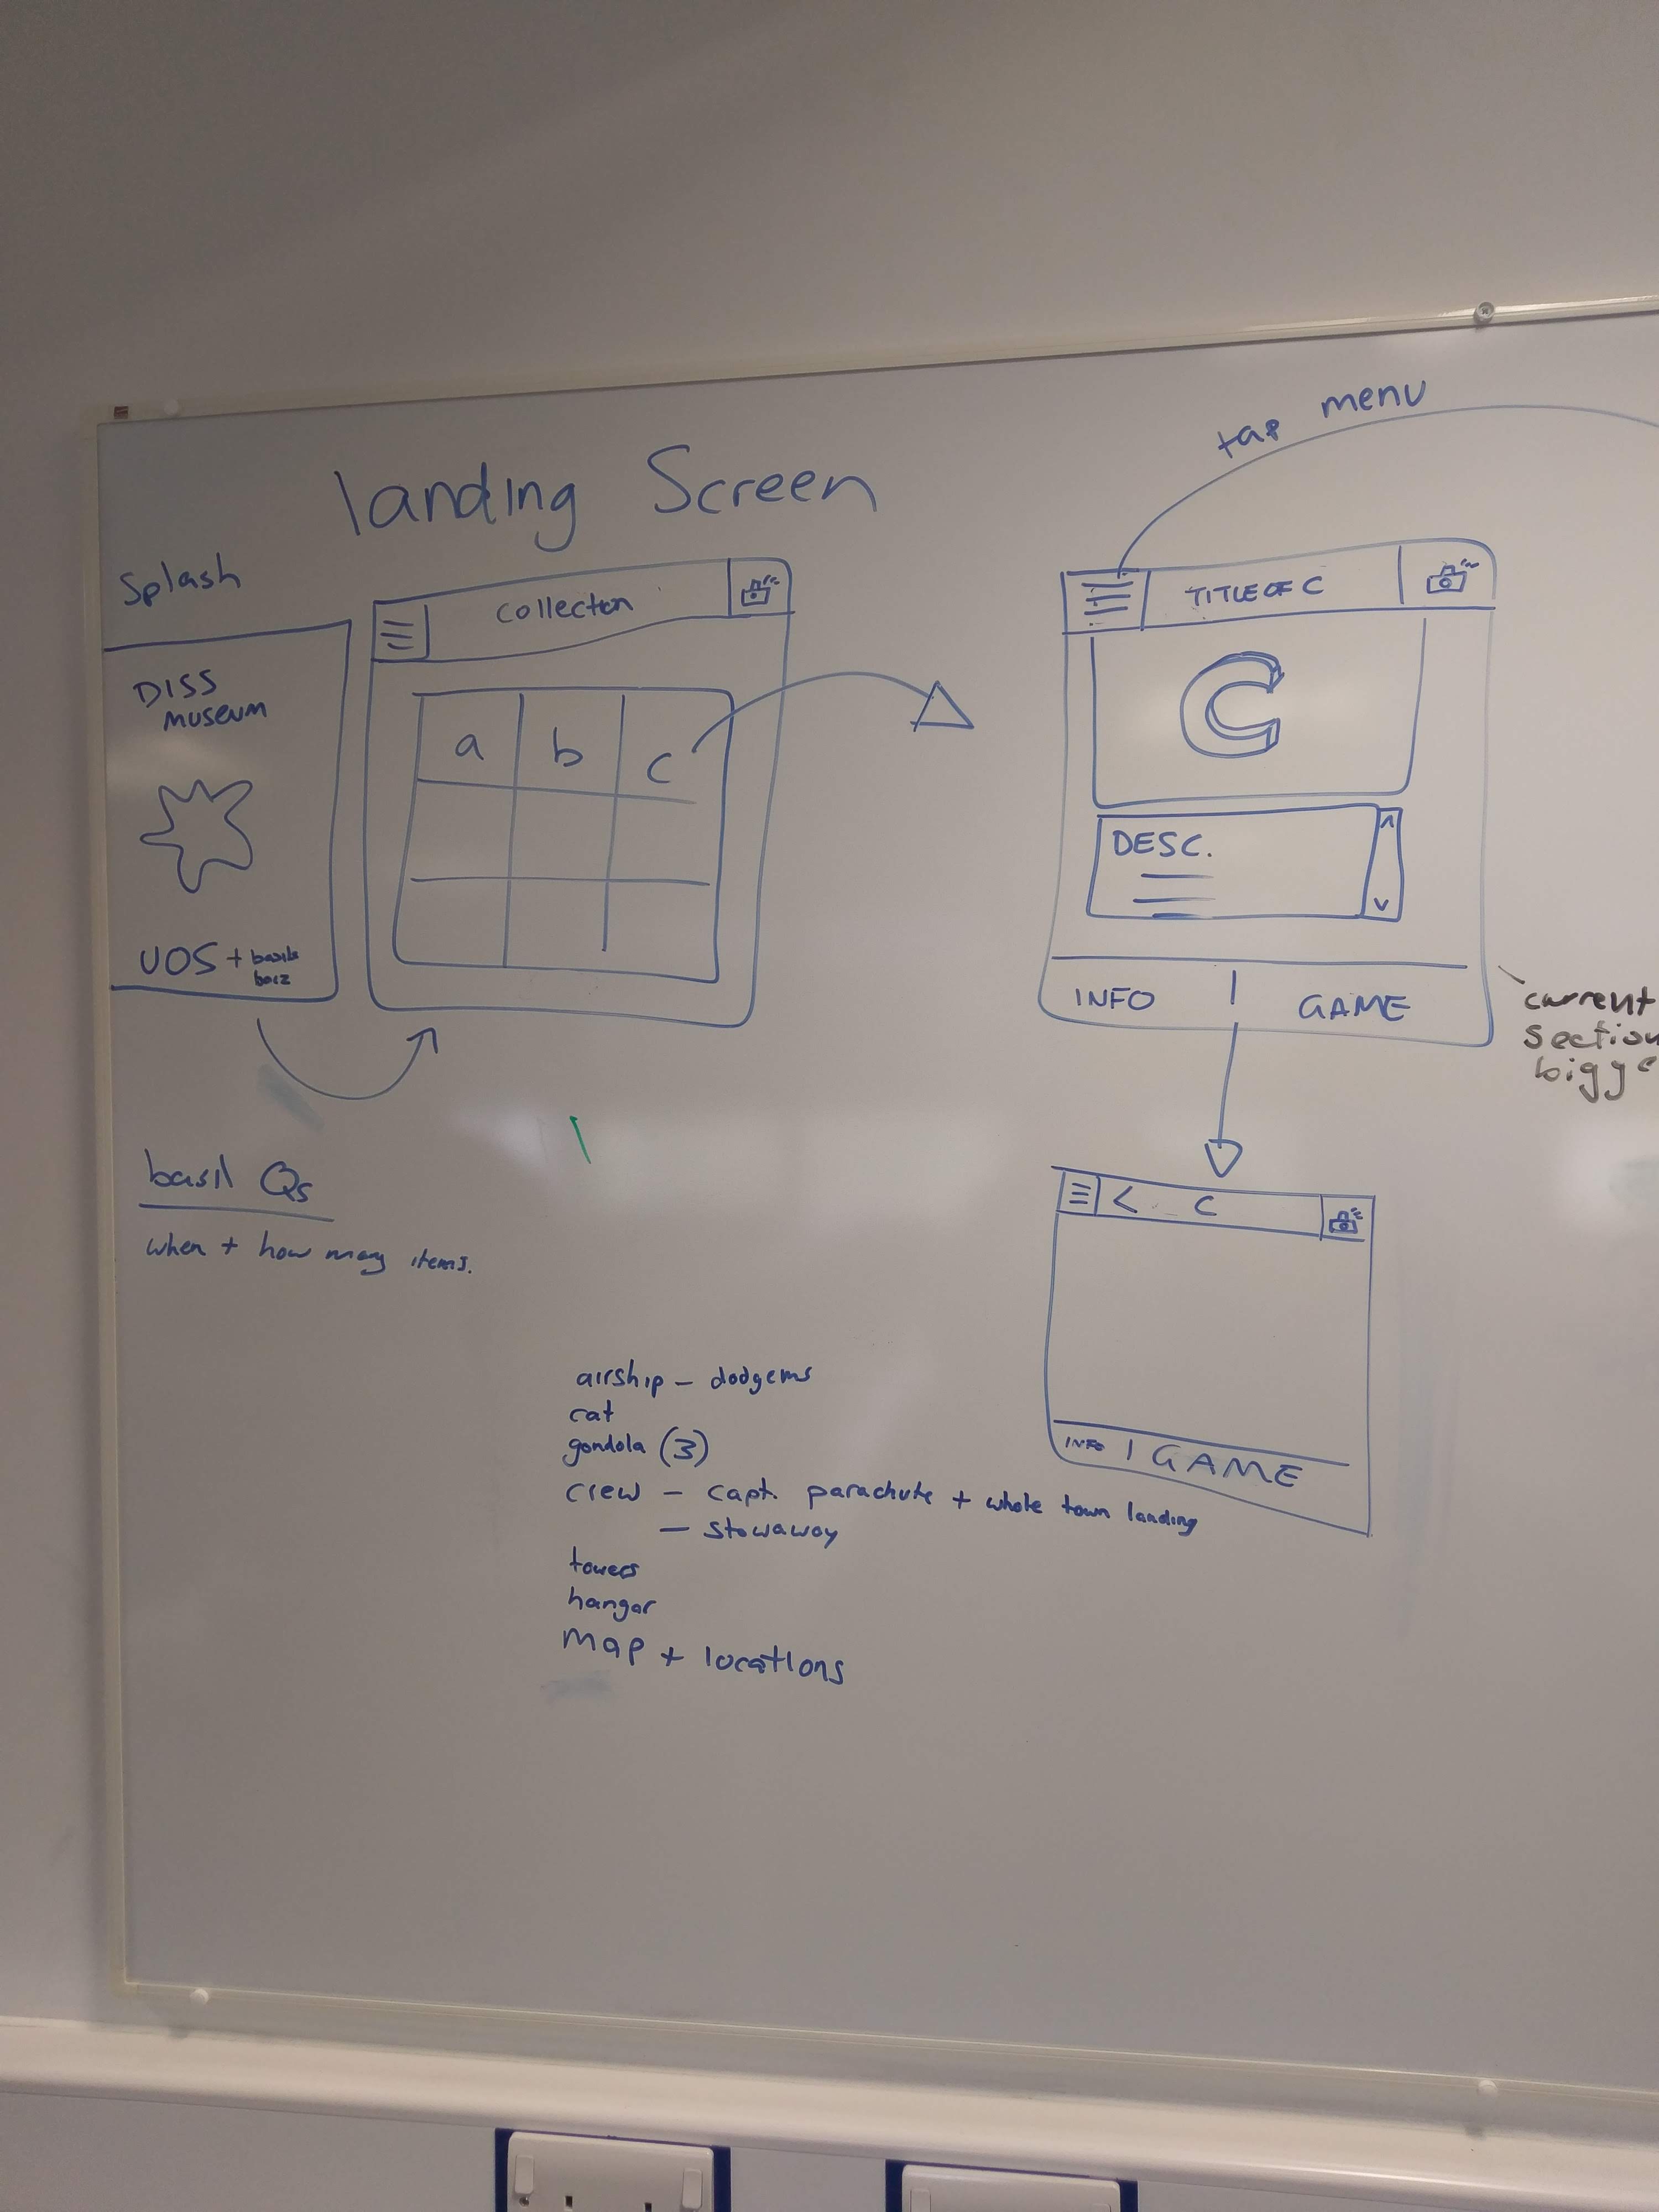 landing Screen
Splash
DISS
MUSEUM
UOS + basils
boiz
Collection
a b c
tap menu
TITLE OF C
C
DESC.
INFO | GAME
current
section
bigge
< C
INFO | GAME
basil Qs
when + how many items.
airship – dodgems
cat
gondola (3)
crew – capt. parachute + whole town landing
– stowaway
towers
hangar
Map + locations